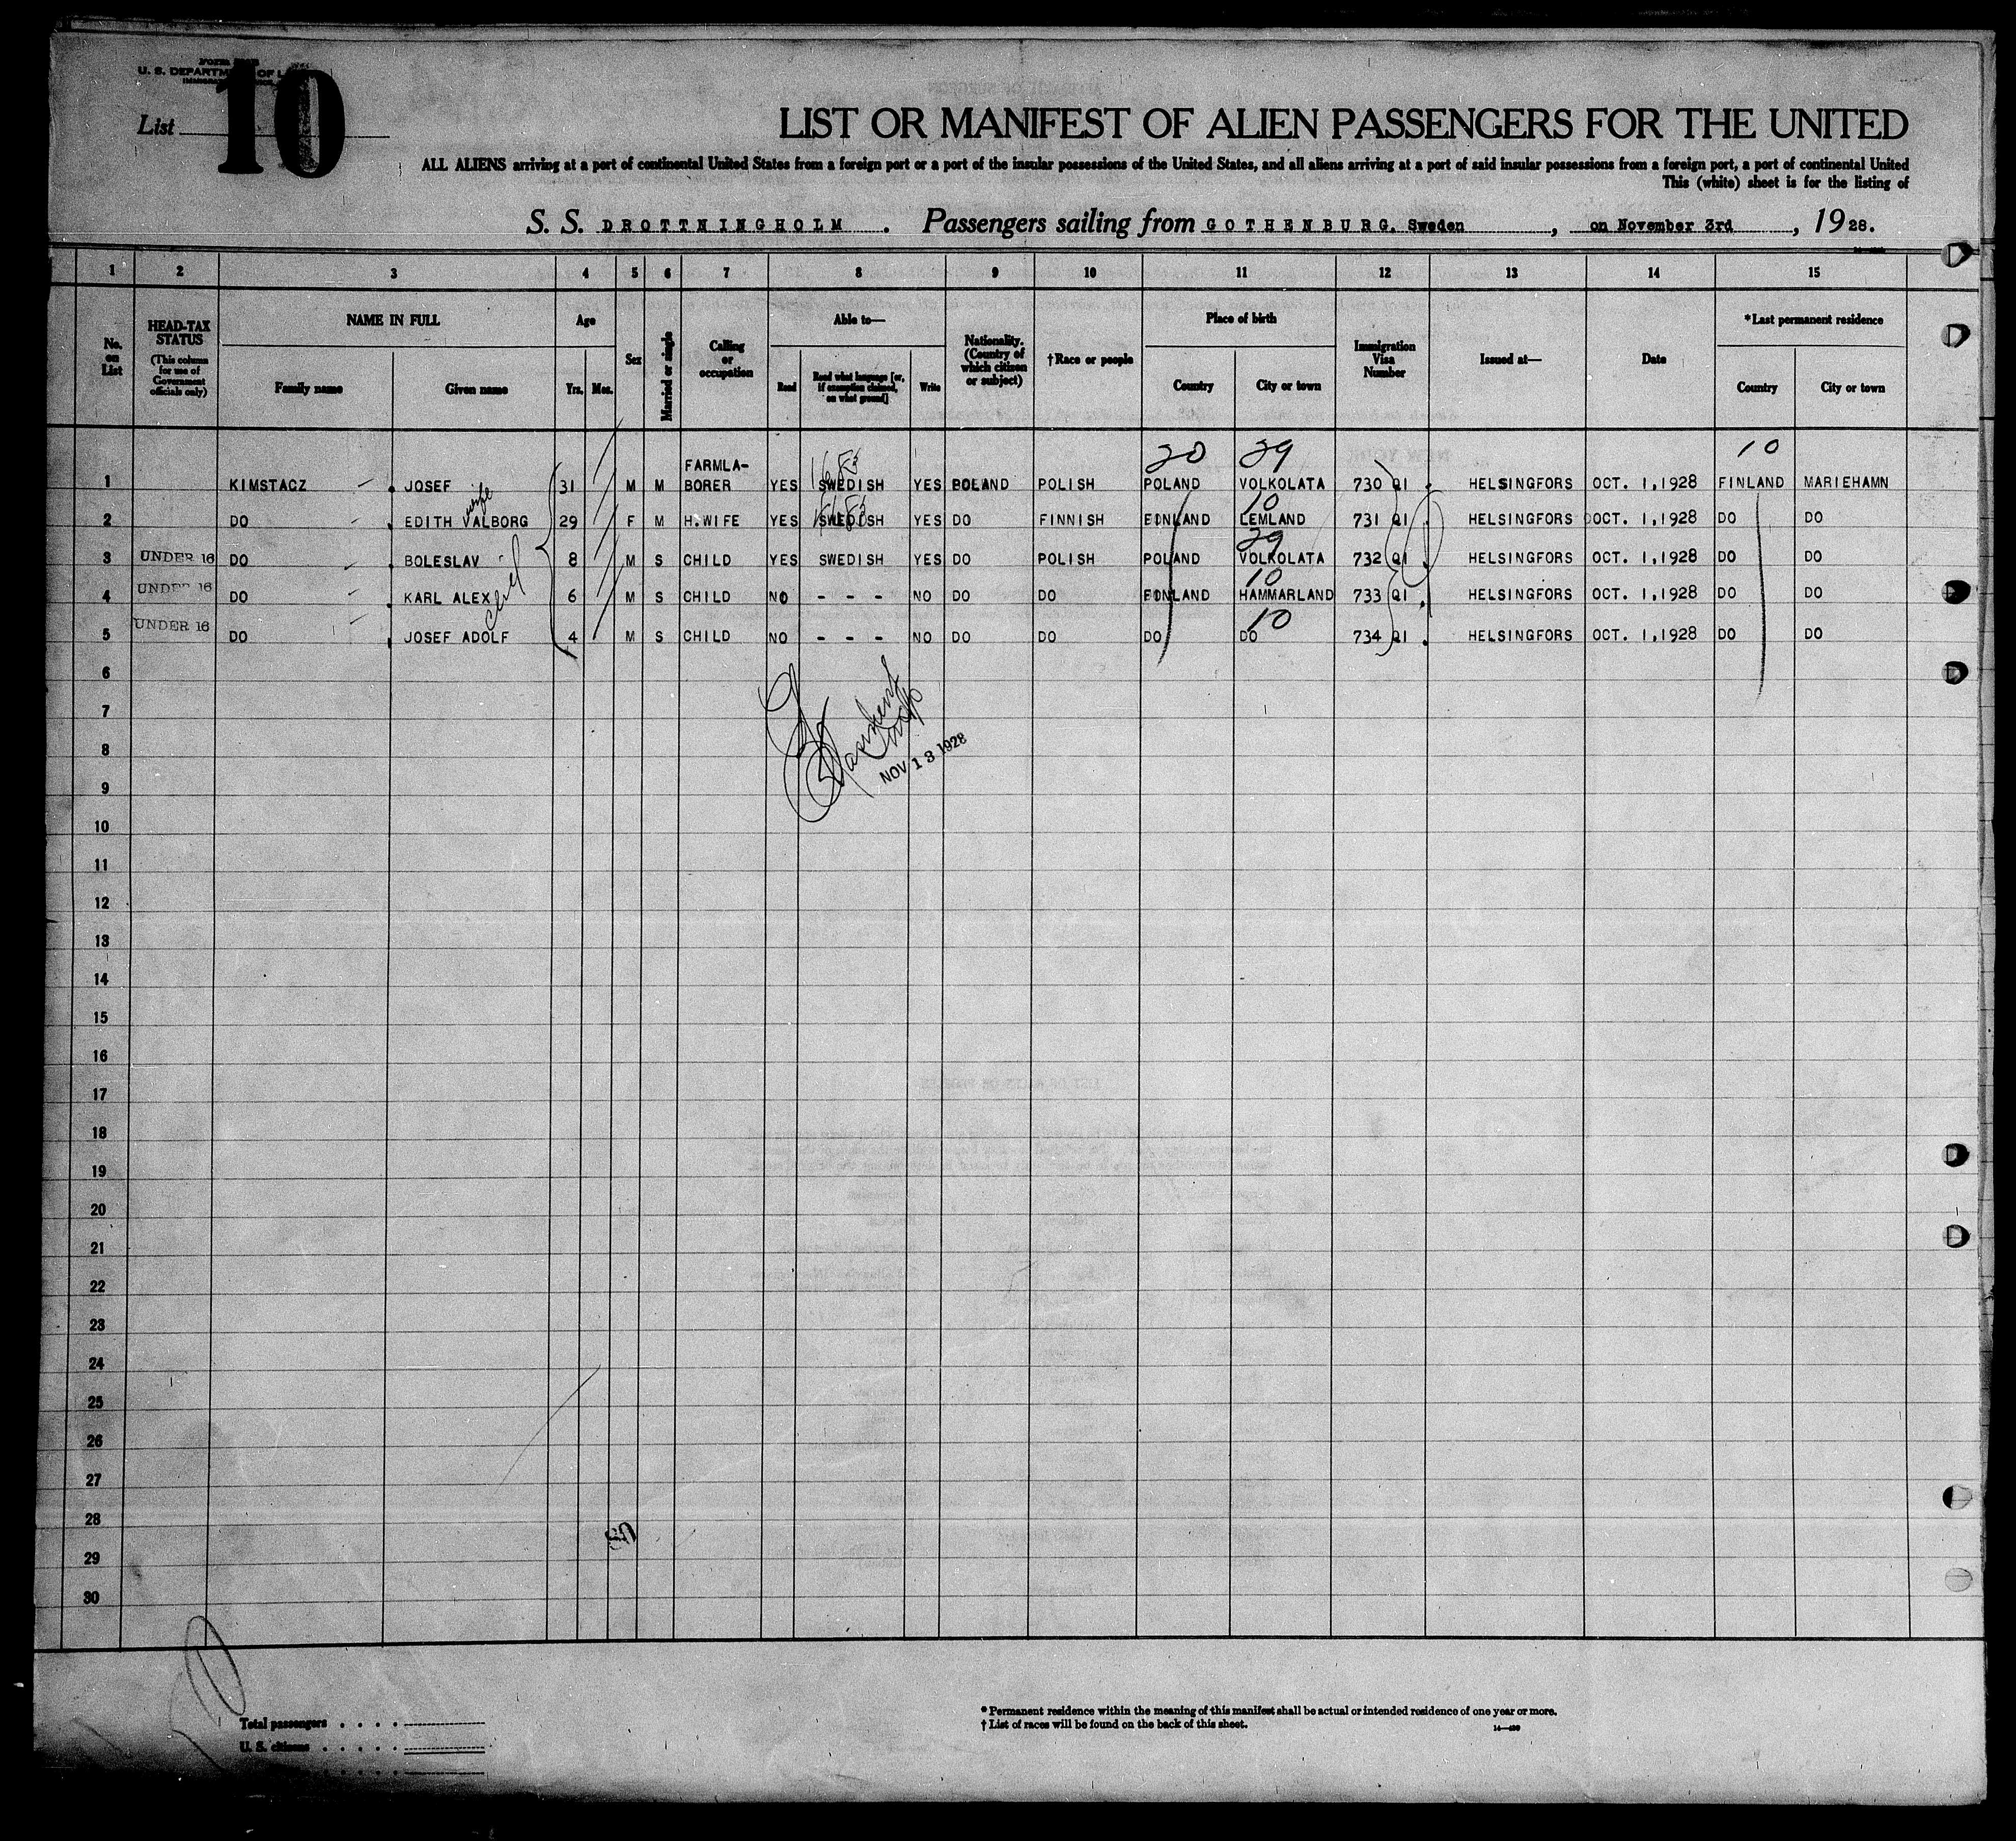 U. S. DEPARTM OF L
List
10
LIST OR MANIFEST OF ALIEN PASSENGERS FOR THE UNITED
ALL ALIENS arriving at a port of continental United States from a foreign port or a port of the insular possessions of the United States, and all aliens arriving at a port of said insular possessions from a foreign port, a port of continental United
This (white) sheet is for the listing of
S. S. DROTTNINGHOLM . Passengers sailing from GOTHENBURG, Sweden , on November 3rd , 1928.
1 2 3 4 5 6 7 8 9 10 11 12 13 14 15
No. on List
HEAD-TAX STATUS (This column for use of Government officials only)
NAME IN FULL
Family name Given name
Age
Yrs. Mos.
Sex
Married or single
Calling or occupation
Able to—
Read Read what language [or, if exemption claimed, on what ground] Write
Nationality. (Country of which citizen or subject)
†Race or people
Place of birth
Country City or town
Immigration Visa Number
Issued at—
Date
*Last permanent residence
Country City or town
20 29 10
FARMLA-
1 KIMSTACZ JOSEF 31 M M BORER YES SWEDISH YES POLAND POLISH POLAND VOLKOLATA 730 QI HELSINGFORS OCT. 1,1928 FINLAND MARIEHAMN
wife 10
2 DO EDITH VALBORG 29 F M H.WIFE YES SWEDISH YES DO FINNISH FINLAND LEMLAND 731 QI HELSINGFORS OCT. 1,1928 DO DO
29
3 UNDER 16 DO BOLESLAV 8 M S CHILD YES SWEDISH YES DO POLISH POLAND VOLKOLATA 732 QI HELSINGFORS OCT. 1,1928 DO DO
10
4 UNDER 16 DO KARL ALEX 6 M S CHILD NO - - - NO DO DO FINLAND HAMMARLAND 733 QI HELSINGFORS OCT. 1,1928 DO DO
10
5 UNDER 16 DO JOSEF ADOLF 4 M S CHILD NO - - - NO DO DO DO DO 734 QI HELSINGFORS OCT. 1,1928 DO DO
6
7
8
NOV 13 1928
9
10
11
12
13
14
15
16
17
18
19
20
21
22
23
24
25
26
27
28
29
30
Total passengers . . . .
U. S. citizens . . . . .
* Permanent residence within the meaning of this manifest shall be actual or intended residence of one year or more.
† List of races will be found on the back of this sheet.